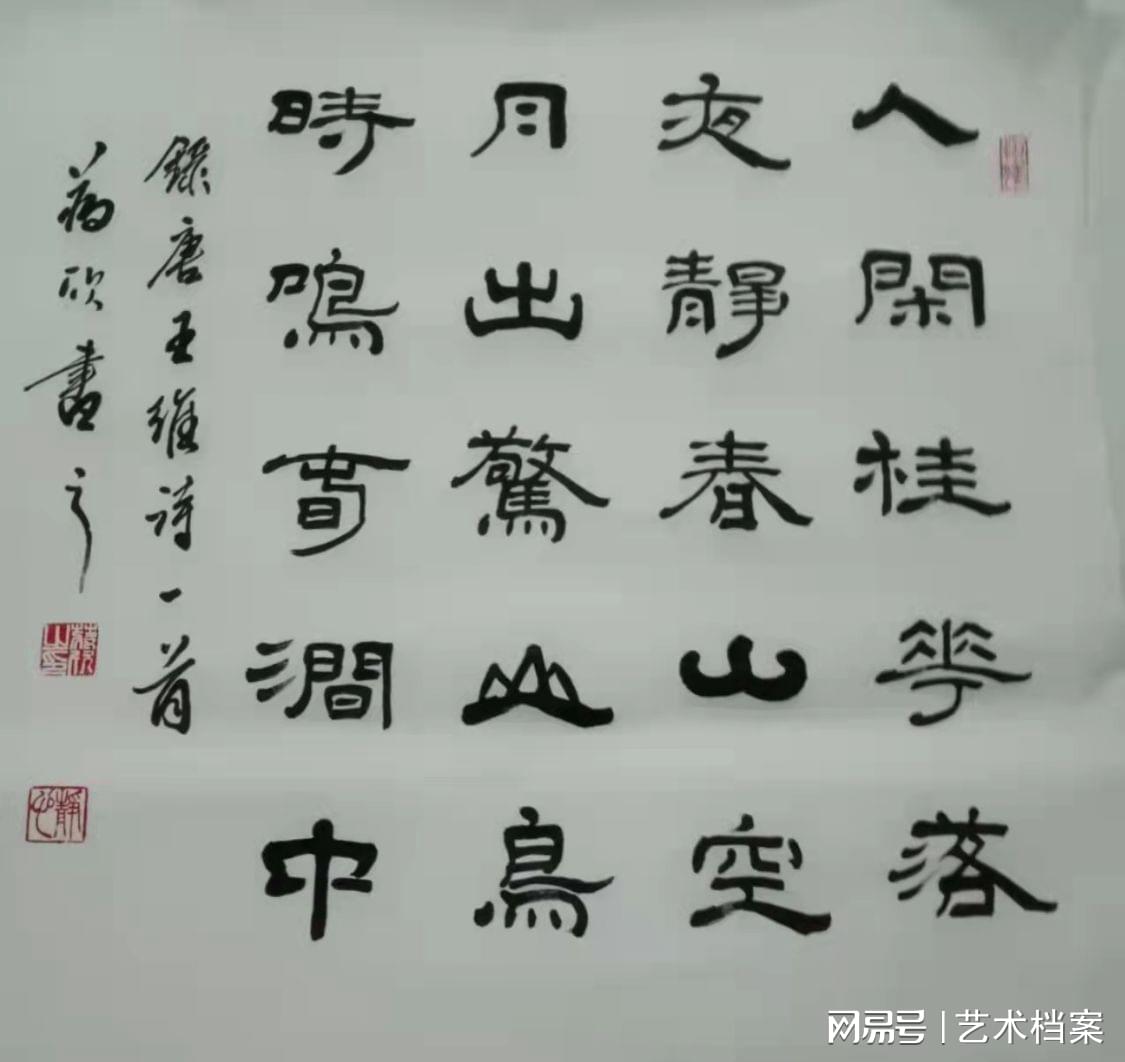 人閑桂花落
夜靜春山空
月出驚山鳥
時鳴春澗中
錄唐王維詩一首
欣書之
靜心
网易号 | 艺术档案